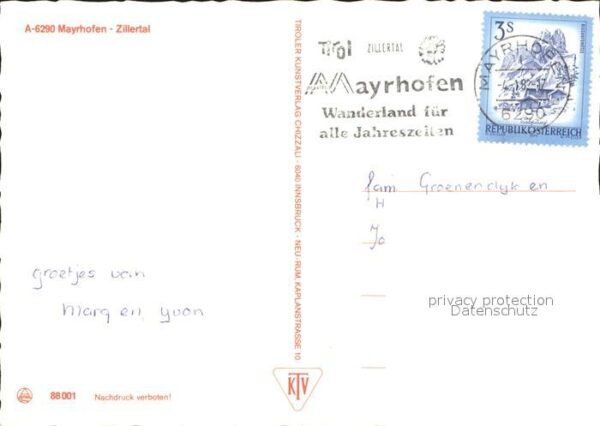 A-6290 Mayrhofen - Zillertal
TIROLER KUNSTVERLAG CHIZZALI · 6040 INNSBRUCK - NEU-RUM, KAPLANSTRASSE 10
Tirol ZILLERTAL
Mayrhofen
Wanderland für
alle Jahreszeiten
3S
REPUBLIK ÖSTERREICH
MAYRHOFEN
6290
fam Groenendyk en
H
Jo
groetjes van
Marq en yvon
privacy protection
Datenschutz
KTV
88001 Nachdruck verboten!